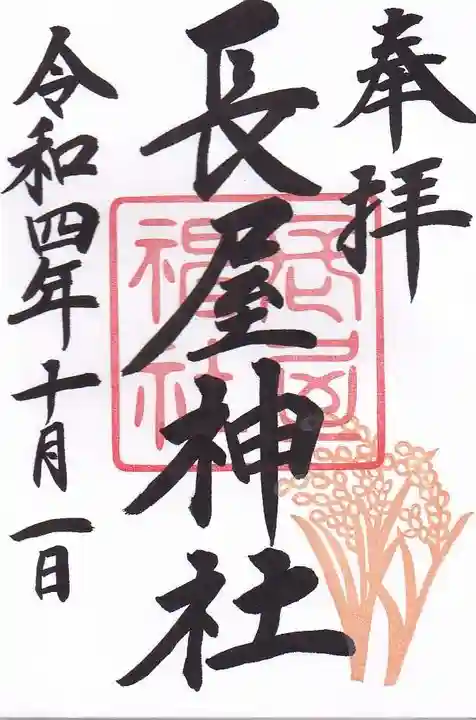 奉拝
長屋神社
令和四年十月一日
長屋神社